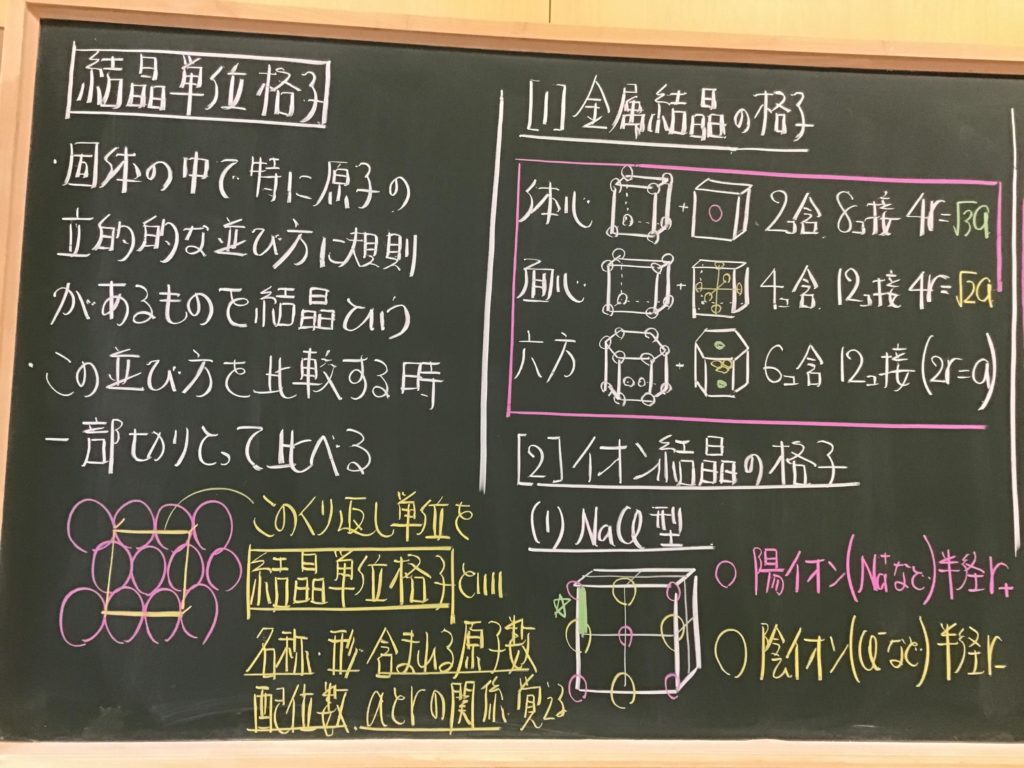 結晶単位格子
・固体の中で特に原子の
立的的な並び方に規則
があるものを結晶という
・この並び方を比較する時
一部切りとって比べる
このくり返し単位を
結晶単位格子といい
名称・形・含まれる原子数
配位数、aとrの関係覚える
[1]金属結晶の格子
体心 + 2コ含 8コ接 4r=√3a
面心 + 4コ含 12コ接 4r=√2a
六方 + 6コ含 12コ接 (2r=a)
[2]イオン結晶の格子
(1) NaCl型
☆
○ 陽イオン(Na⁺など)半径r₊
○ 陰イオン(Cl⁻など)半径r₋